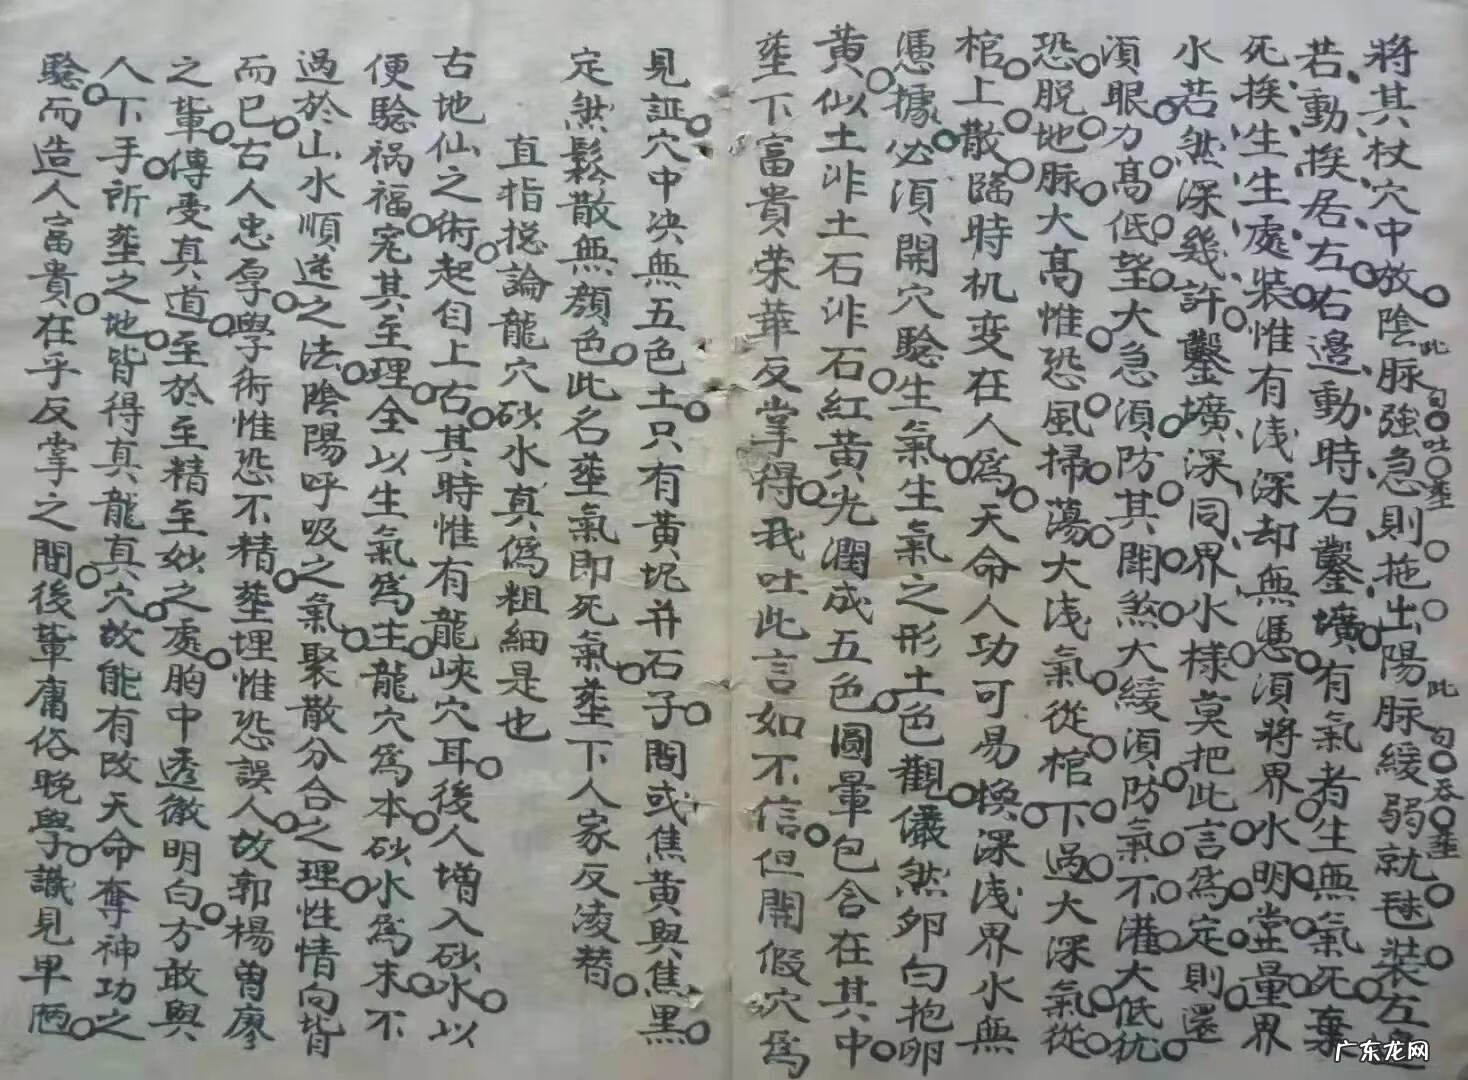 將其杖穴中放陰脉強急則拖出陽脉緩弱就毬裝左邊
此句吐葬
此句吞葬
若動挨居左右邉動時右鑿壙有氣者生無氣死棄
死挨生生處裝惟有浅深却無憑湏將界水明堂量界
水若然深幾許鑿壙深同界水様莫把此言爲定則還
湏眼力髙低塟大急湏防其閗煞大緩湏防氣不灌大低犹
恐脱地脉大髙惟恐風掃蕩大浅氣從棺下過大深氣從
棺上散臨時机变在人爲天命人功可易換深浅界水無
憑據必湏開穴驗生氣生氣之形土色觀儼然卵白抱卵
黄似土非土石非石紅黄光潤成五色圓暈包含在其中
塟下富貴荣華反掌得我吐此言如不信但開假穴爲
見証穴中决無五色土只有黄坭并石子間或焦黄與焦黑
定然鬆散無顔色此名塟氣即死氣塟下人家反凌替
直指捴論龍穴砂水真僞粗細是也
古地仙之術起自上古其時惟有龍峽穴耳後人增入砂水以
便驗祸福究其至理全以生氣爲生龍穴爲本砂水爲末不
過於山水順逆之法陰陽呼吸之氣聚散分合之理性情向背
而已古人忠厚學術惟恐不精塟埋惟恐誤人故郭楊曾廖
之軰傳受真道至於至精至妙之處胸中透徹明白方敢與
人下手所塟之地皆得真龍真穴故能有改天命奪神功之
驗而造人富貴在乎反掌之間後軰庸俗晚學識見卑陋
广东龙网